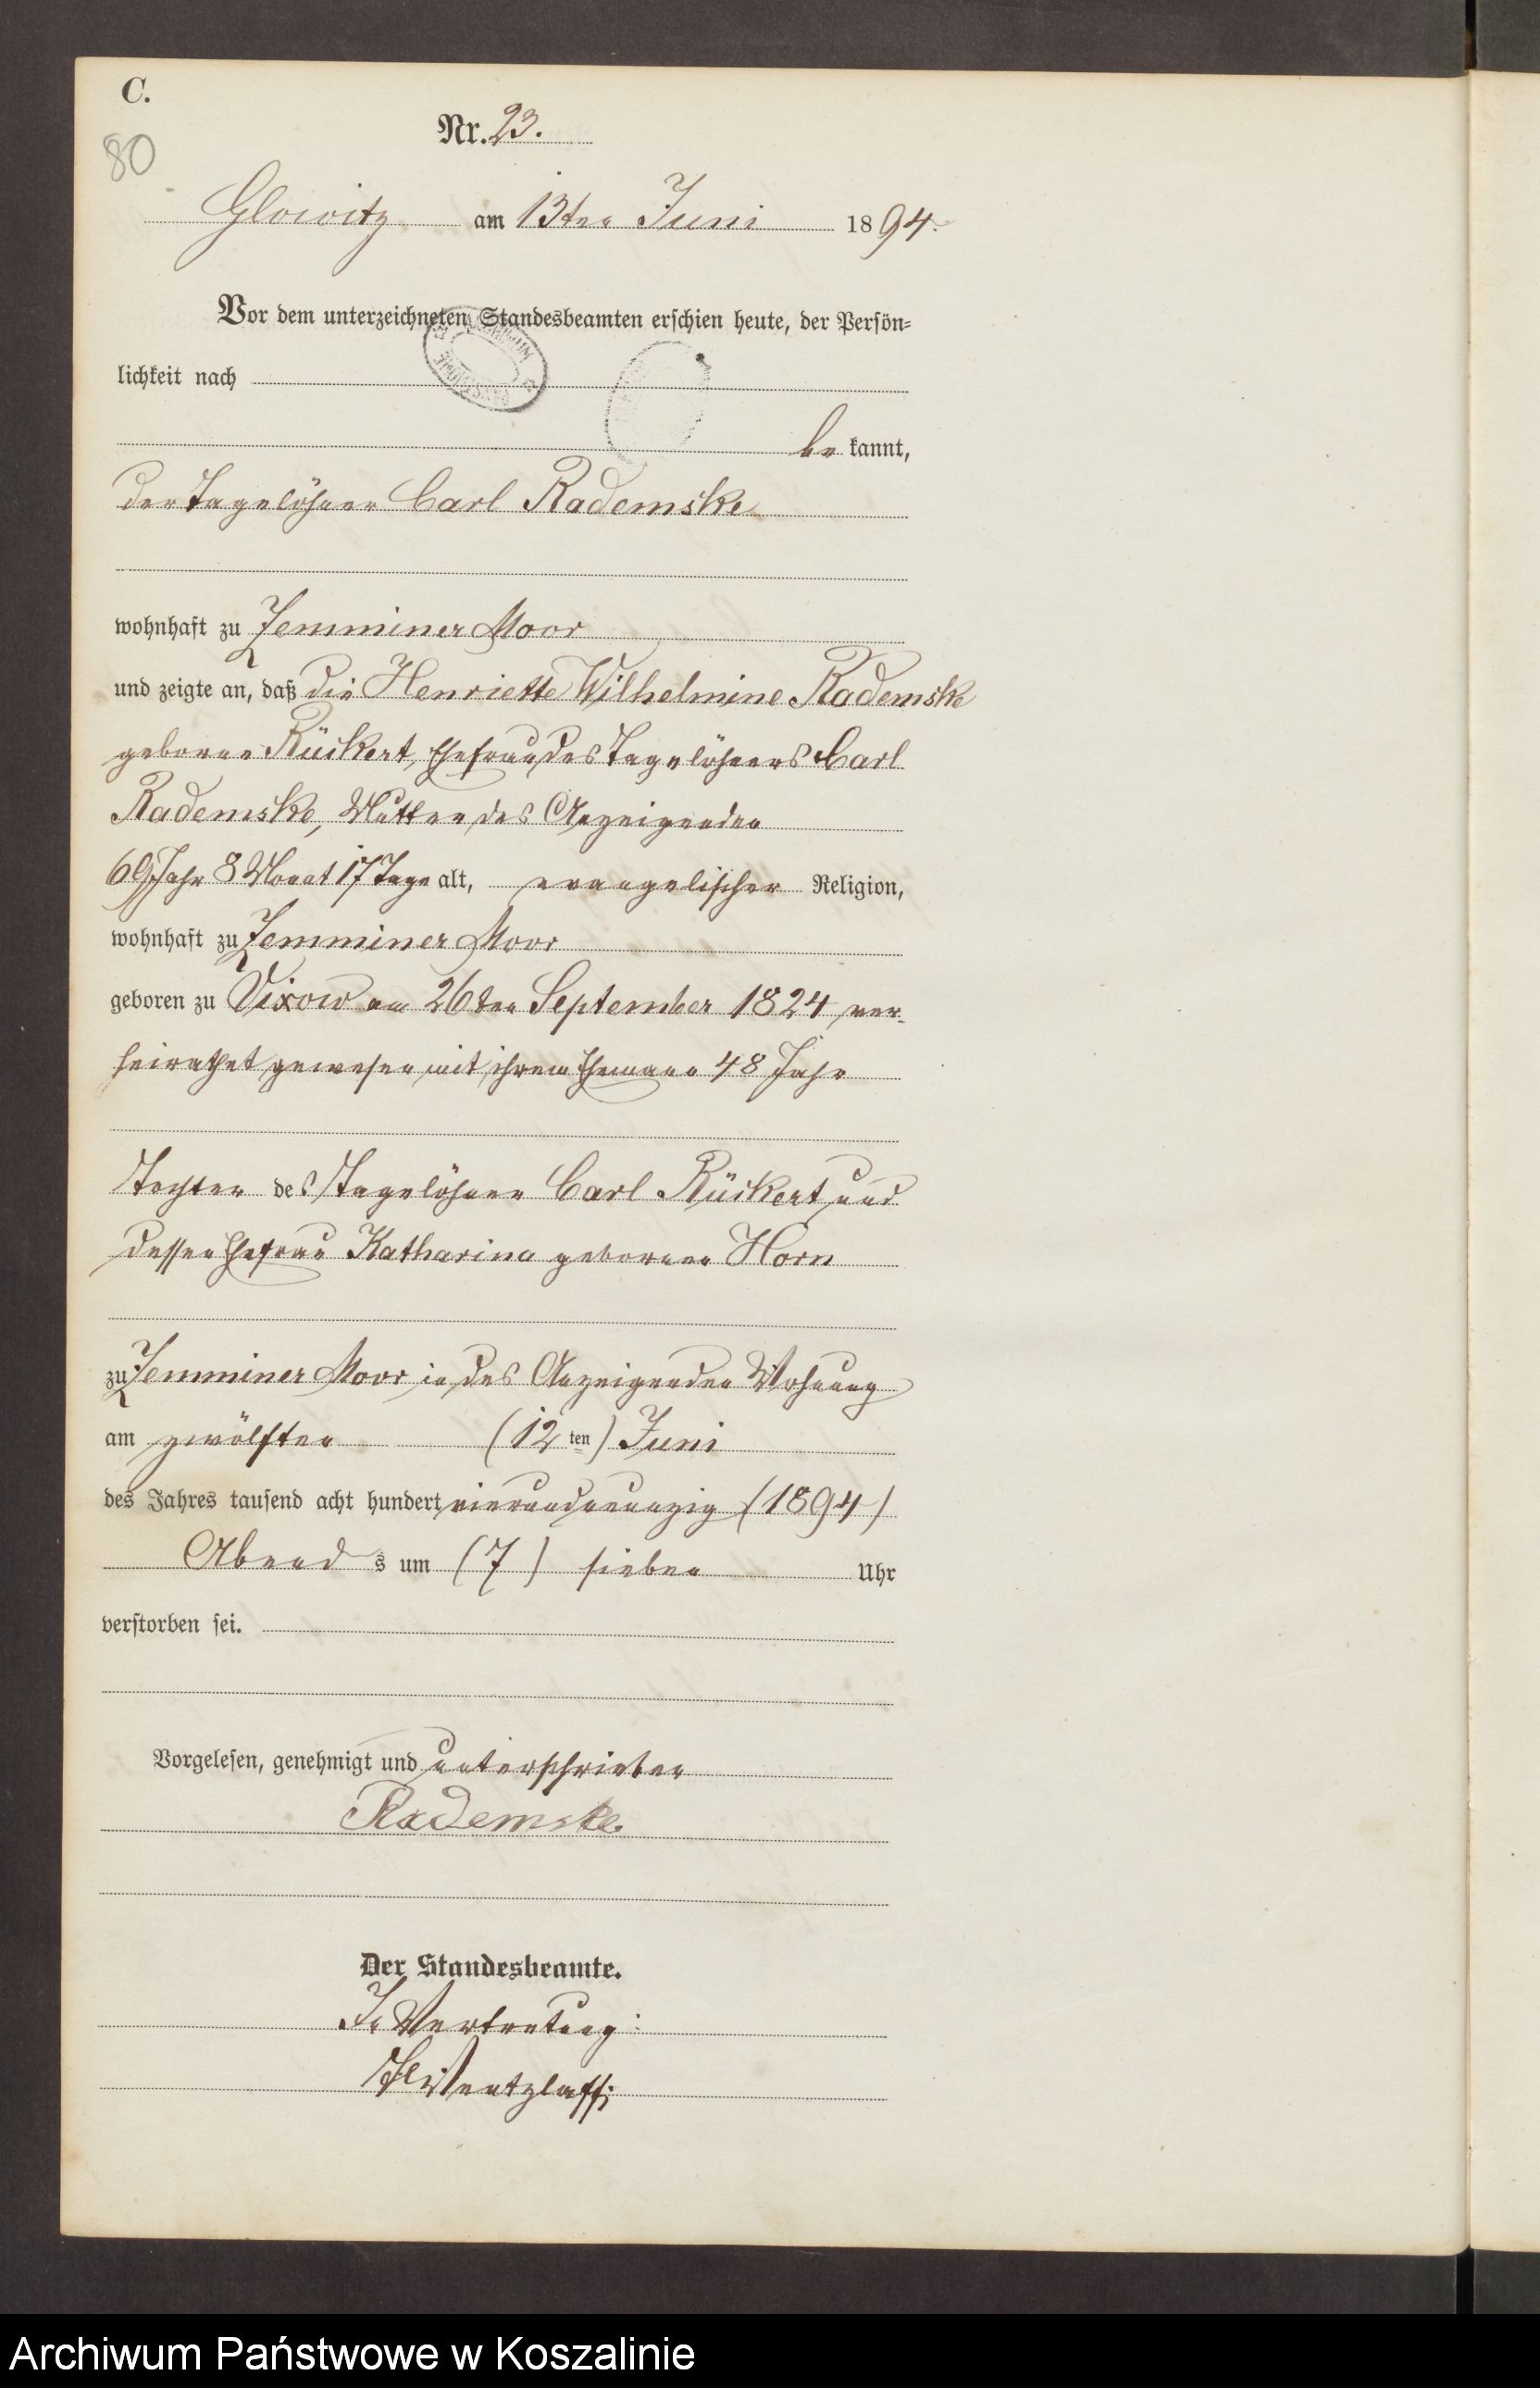 C.
80
Nr. 23.
Glowitz am 13ten Juni 1894.
Vor dem unterzeichneten Standesbeamten erschien heute, der Persön-
lichkeit nach
be kannt,
der Tagelöhner Carl Rademske
wohnhaft zu Zemminer Moor
und zeigte an, daß die Henriette Wilhelmine Rademske
geborne Rückert, Ehefrau des Tagelöhners Carl
Rademske, Mutter des Anzeigenden
69 Jahr 8 Monat 17 Tage alt, evangelischer Religion,
wohnhaft zu Zemminer Moor
geboren zu Vixow am 26ten September 1824 ver-
heirathet gewesen mit ihrem Ehemann 48 Jahr
Tochter des Tagelöhner Carl Rückert und
dessen Ehefrau Katharina geborner Horn
zu Zemminer Moor in des Anzeigenden Wohnung
am zwölften (12 ten) Juni
des Jahres tausend acht hundert vierundneunzig (1894)
Abend s um (7) sieben Uhr
verstorben sei.
Vorgelesen, genehmigt und unterschrieben
Rademske
Der Standesbeamte.
In Vertretung:
Wentzlaff
Archiwum Państwowe w Koszalinie